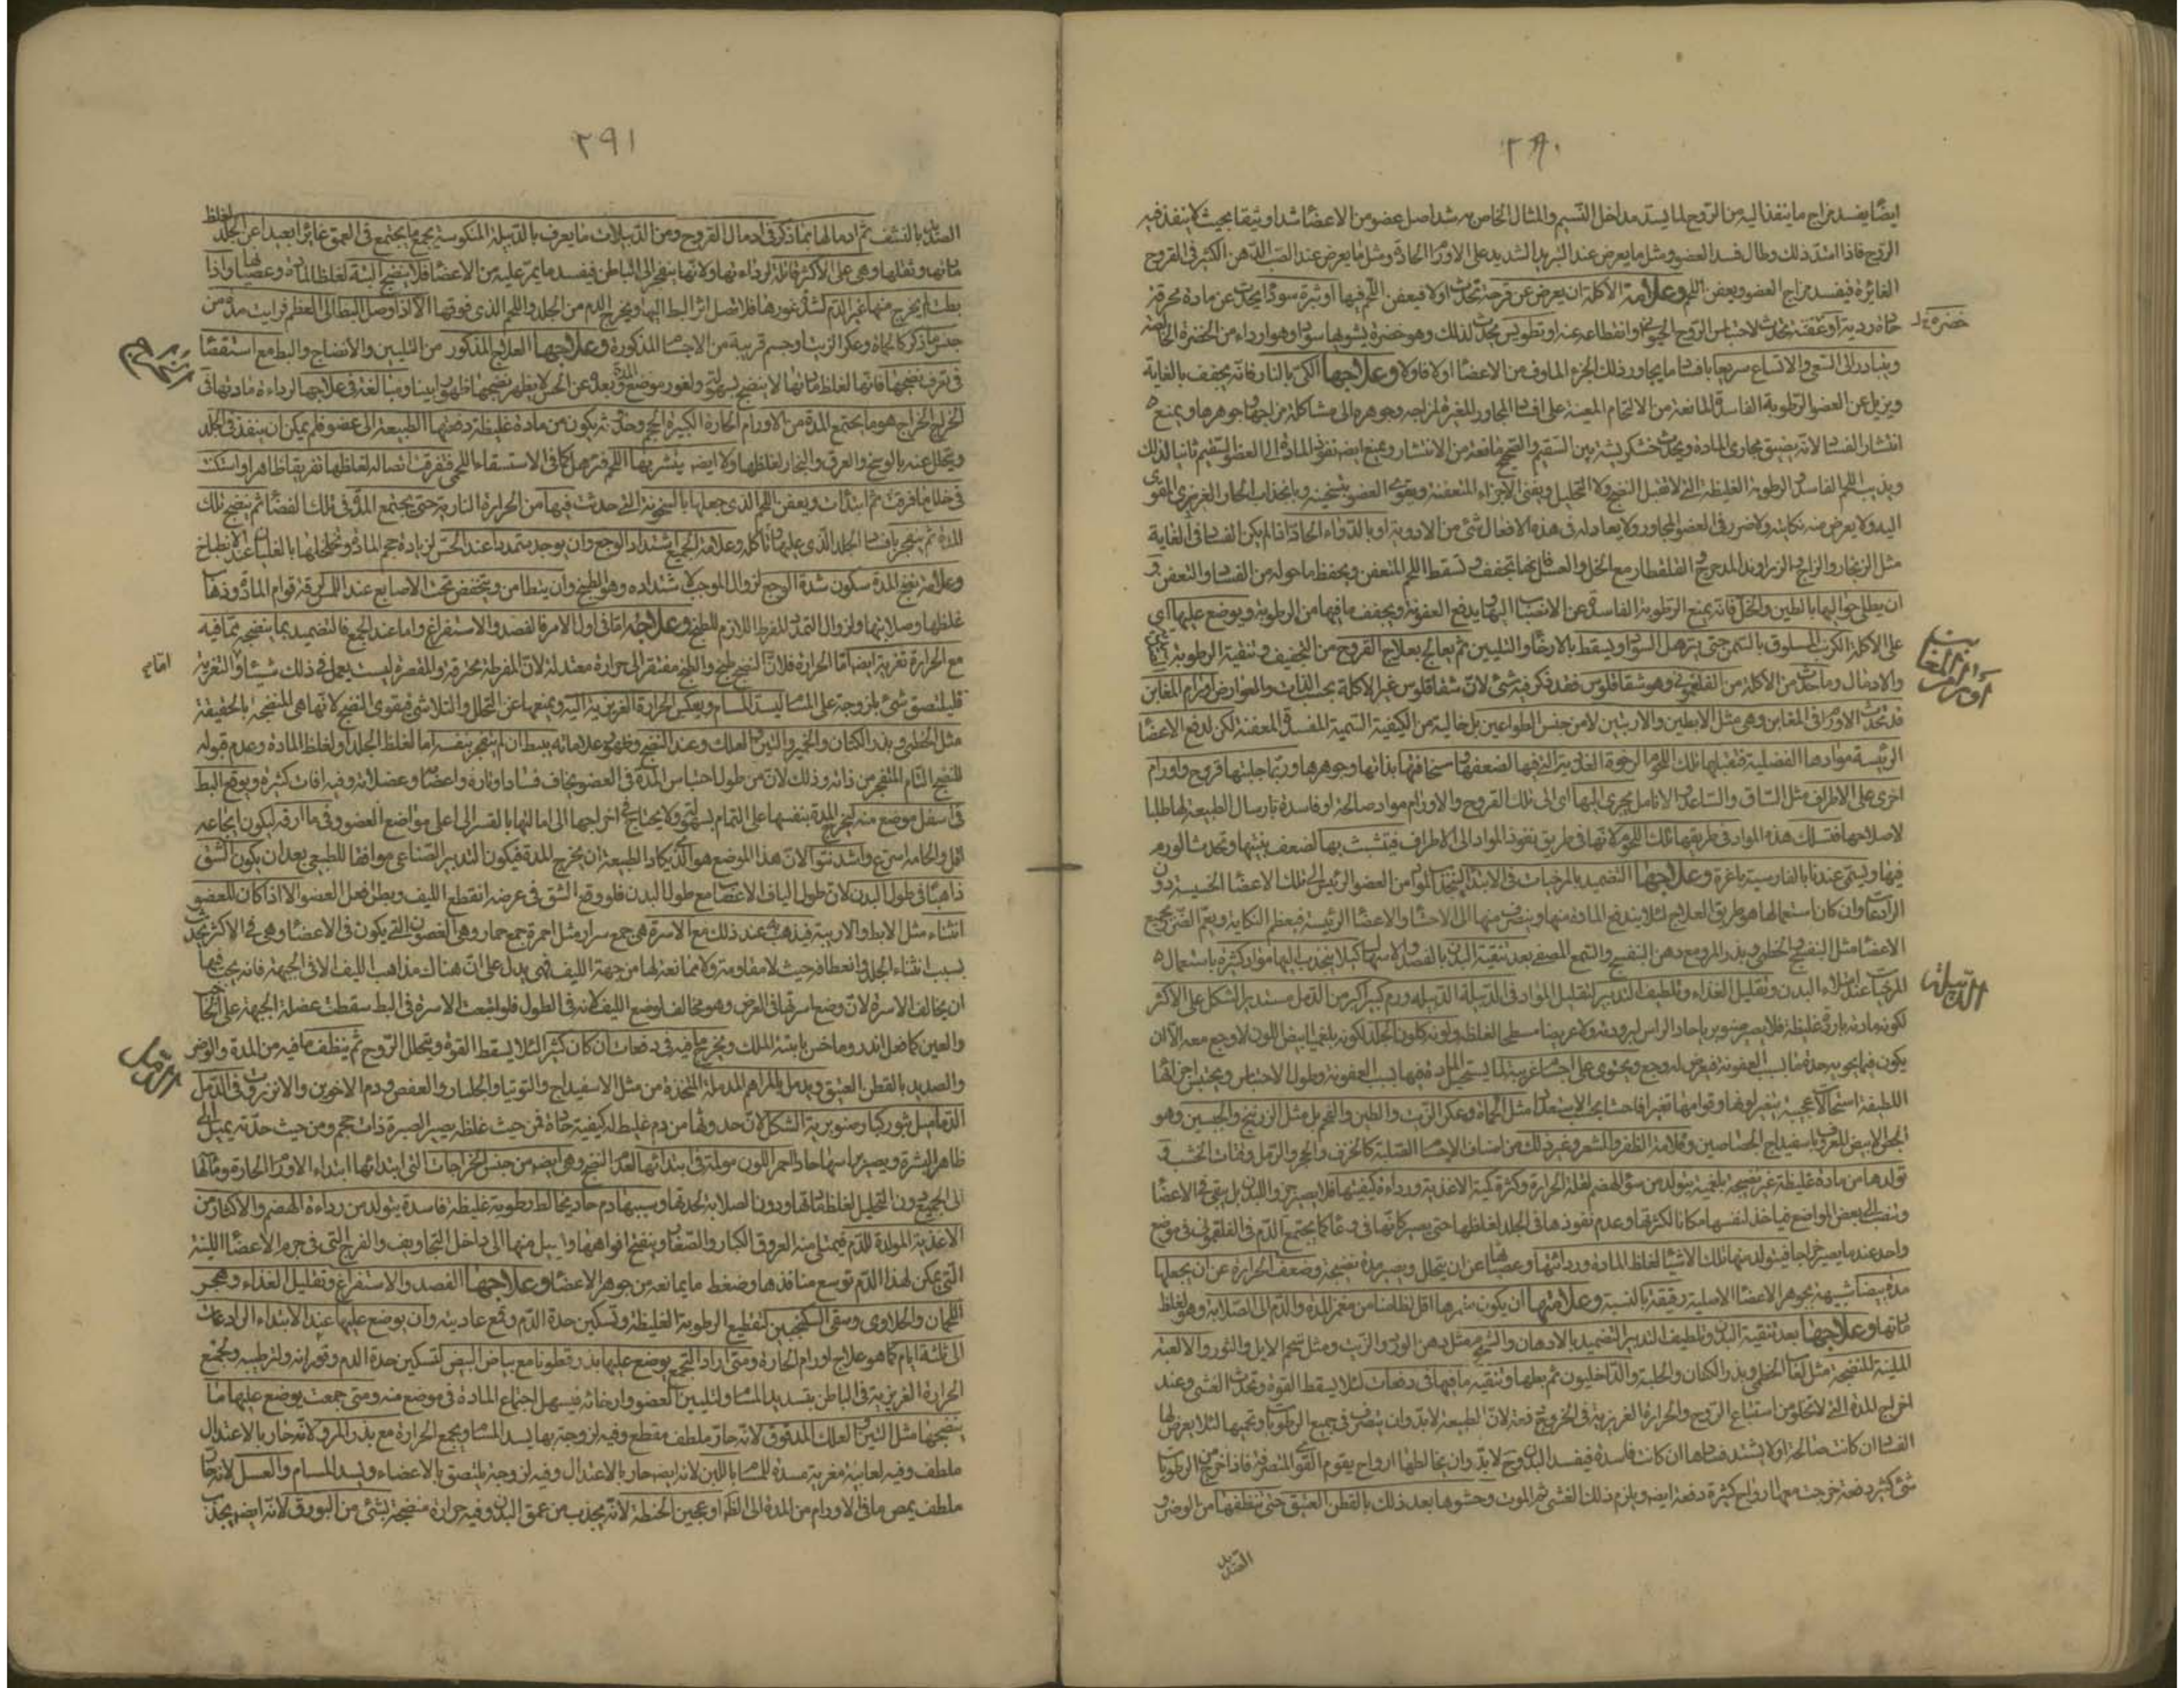 ٢٩٠
ايضا يفسد مزاج ما ينفذ اليه من الروح لما يسد مداخل النسيم والمثال الخاص به شد اصل عضو من الاعضاء شدا وثيقا بحيث لا ينفذ فيه
الروح فاذا امتد ذلك وطال فسد العضو ومثل ما يعرض عند التبريد الشديد على الاورام الحادة ومثل ما يعرض عند الصب الدهن الكثير في القروح
الغائرة فيفسد مزاج العضو ويعفن اللحم وعلامة الآكلة ان يعرض عن قرحة تحدث اولا فيعفن اللحم فيها او بثرة سوداء يحدث عن مادة محرقة
حادة ردية او عفنة تحدث لاحتباس الروح الحيواني وانقطاعه عنه او تطويس يحدث لذلك وهو خضرة يشوبها سواد وهو اردء من الخضرة الخالصة
ويتبادر الى السعي والاتساع سريعا بافساد ما يجاور ذلك الجزء الماوف من الاعضاء اولا فاولا وعلاجها الكي بالنار فانه يجفف بالغاية
ويزيل عن العضو الرطوبة الفاسدة المانعة من الالتحام المعينة على افساد المجاور المغيرة لمزاجه وجوهره الى مشاكلة مزاجها وجوهرها ويمنع
انتشار الفساد لانه يضيق مجاري المادة ويحدث خشكريشة بين السقيم والصحيح مانعة من الانتشار ويمنع ايضا نفوذ المادة الى العضو السقيم ثانيا لذلك
ويذيب اللحم الفاسد والرطوبة الغليظة التي لا تقبل النضج ولا التحليل ويفنى الاجزاء المتعفنة ويقوى العضو بتسخينه وبانجذاب الحار الغريزي القوى
اليه ولا يعرض منه نكاية ولا ضرر في العضو المجاور ولا يعادله في هذه الافعال شئ من الادوية او بالدواء الحاد اذا لم يكن الفساد في الغاية
مثل الزنجار والزاج والزراوند المدحرج والقلقطار مع الخل والعسل فانها تجفف وتسقط اللحم المتعفن ويحفظ ما حوله من الفساد والتعفن و
ان يطلى حواليها بالطين والخل فانه يمنع الرطوبة الفاسدة عن الانصباب اليها ويدفع العفونة ويجفف ما فيها من الرطوبة ويوضع عليها اي
على الآكلة الكرنب المسلوق بالسمن حتى يترهل السواد ويسقط بالارخاء والتليين ثم يعالج بعلاج القروح من التجفيف وتنقية الرطوبة
والادمال وما حدث من الآكلة من الفلغموني وهو شقاقلوس فقد ذكر فيه شئ لان شقاقلوس غير الآكلة بحسب الذات والعوارض اورام المغابن
قد تحدث الاورام في المغابن وهي مثل الابطين والاربيتين لا من جنس الطواعين بل خالية من الكيفية السمية المفسدة المعفنة لكن لدفع الاعضاء
الرئيسة موادها الفضلية فتقبلها تلك اللحوم الرخوة الغددية التي فيها لضعفها وسخافتها بذاتها وجوهرها وربما جلبتها قروح واورام
اخرى على الاطراف مثل الساق والساعد والانامل يجرى اليها اى الى تلك القروح والاورام مواد صالحة او فاسدة بارسال الطبيعة لها طلبا
لاصلاحها فتسلك هذه المواد في طريقها تلك اللحوم لانها في طريق نفوذ المواد الى الاطراف فيتشبث بها لضعف بنيتها وتحدث الورم
فيها ويسمى عندنا بالفارسية باغره وعلاجها التضميد بالمرخيات في الابتداء لتنجذب المواد من العضو الرئيس الى تلك الاعضاء الخسيسة دون
الرادعات وان كان استعمالها هو طريق العلاج لئلا يندفع المادة منها وينصرف منها الى الاحشاء والاعضاء الرئيسة فيعظم النكاية ويعم الضرر جميع
الاعضاء مثل البنفسج والخطمى وبذر المرو مع دهن البنفسج والشمع المصفى بعد تنقية البدن بالفصد والاسهال كيلا ينجذب اليها مواد كثيرة باستعمال
المرخيات عند امتلاء البدن وتقليل الغذاء وتلطيف التدبير لتقليل المواد في الدبيلة الدبيلة ورم كبير اكبر من الدمل مستدير الشكل على الاكثر
لكونه مادته باردة غليظة فلا يصير صنوبريا حاد الراس لبرودته ولا عريضا مسطحا لغلظه ولونه كلون الجلد لكونه بلغميا ابيض اللون لا وجع معه الا ان
يكون فيما يحويه حدة ما بسبب العفونة فيعرض له وجع ويحتوى على اجسام غريبة لما يستحيل المادة فيها بسبب العفونة وطول الاحتباس ويحتبس اجزاءها
اللطيفة استحالة عجيبة يتغير لونها وقوامها تغيرا فاحشا بحسب الاستعداد مثل الحماة وعكر الزيت والطين والفحم بل مثل الزرنيخ والجبسين وهو
الجص الابيض المعروف باسفيداج الجصاصين وقلامة الظفر والشعر وغير ذلك من اصناف الاجسام الصلبة كالخزف والحجر والرمل وفتات الخشب و
تولدها من مادة غليظة غير نضيجة بلغمية يتولد من سوء الهضم لقلة الحرارة وكثرة كمية الاغذية ورداءة كيفيتها فلا يصير جزوا للبدن بل يبقى في الاعضاء
وتنصب الى بعض المواضع فياخذ لنفسها مكانا لكثرتها وعدم نفوذها في الجلد لغلظها حتى يصير كانها في وعاء كما يجتمع الدم في الفلغموني في موضع
واحد عندما يصير خراجا فيتولد منها تلك الاشياء لغلظ المادة وردائتها وعصيانها عن ان يتحلل ويصير مدة نضيجة وضعف الحرارة عن ان يجعلها
مدة بيضاء شبيهة بجوهر الاعضاء الاصلية رقيقة بالنسبة وعلامتها ان يكون مغمزها اقل تطامنا من مغمز المدة والدم الى الصلابة وهو لغلظ
مادتها وعلاجها بعد تنقية البدن وتلطيف التدبير التضميد بالادهان والشحوم مثل دهن الورد والزيت ومثل شحم الايل والثور والالعبة
الملينة المنضجة مثل لعاب الخطمى وبذر الكتان والحلبة والداخليون ثم بطها وتنقيه ما فيها في دفعات لئلا يسقط القوة وتحدث الغشى وعند
اخراج المدة التي لا تخلو من استتباع الروح والحرارة الغريزية في الخروج دفعة لان الطبيعة لا بد وان يتصرف في جميع الرطوبات وتحميها لئلا يعرض لها
الفساد ان كانت صالحة او لا يشتد فسادها ان كانت فاسدة فيفسد البدن وح لا بد وان يخالطها ارواح يقوم القوى المتصرفة فاذا خرج من الرطوبات
شئ كثير دفعة خرجت معها ارواح كثيرة دفعة ايضا ويلزم ذلك الغشى ثم الموت وحشوها بعد ذلك بالقطن العتيق حتى ينظفها من الوضر و
الصديد
خضرة
اورام المغابن
الدبيلة
٢٩١
الصديد بالنشف ثم ادمالها بما ذكر في ادمال القروح ومن الدبيلات ما يعرف بالدبيلة المنكوسة يجمع ما يجتمع في العمق غائرا بعيدا عن الجلد لغلظ
مادتها وثقلها وهي على الاكثر قاتلة لرداءتها ولانها ينفجر الى الباطن فيفسد ما يمر عليه من الاعضاء فلا ينضج البتة لغلظ المادة وعصيانها واذا
بطت لم يخرج منها غير الدم لشدة غورها فلا تصل اثر البط اليها ويخرج الدم من الجلد واللحم الذي فوقها الا اذا وصل البط الى العظم فرايت مدة من
جنس ما ذكر كالحماة وعكر الزيت او جسم قريبة من الاجسام المذكورة وعلاجها العلاج المذكور من التليين والانضاج والبط مع استقصاء
في تعرف نضجها فانها لغلظ مادتها لا ينضج بسهولة ولغور موضع المدة وبعده عن الحس لا يظهر نضجها ظهورا بينا ومبالغة في علاجها لرداءة مادتها في
الخراج الخراج هو ما يجتمع المدة من الاورام الحارة الكبيرة الحجم وحدوثه يكون من مادة غليظة دفعتها الطبيعة الى عضو فلم يمكن ان ينفذ في الجلد
ويتحلل عنه بالوسخ والعرق والبخار لغلظها ولا ايضا يتشربها اللحم فترهل كما في الاستسقاء اللحمي فتفرقت اتصاله لغلظها تفريقا ظاهرا واستكن
في خلل ما فرقت ثم ابتدأت ويعفن اللحم الذي جعلها بالسخونة التي حدثت فيها من الحرارة النارية حتى يجتمع المدة في تلك الفضاء ثم ينضج تلك
المدة ثم ينفجر بافساد الجلد الذي عليها وتاكله وعلامة الجمع اشتداد الوجع وان يوجد متمددا عند الحس لزيادة حجم المادة وتخلخلها بالغليان عند الانطباخ
وعلامة نضج المدة سكون شدة الوجع لزوال الموجب لاشتداده وهو الطبخ وان يتطامن وينخفض تحت الاصابع عند اللمس لرقة قوام المادة وذهاب
غلظها وصلابتها ولزوال التمدد المفرط اللازم للطبخ وعلاجه اما في اول الامر فالفصد والاستفراغ واما عند الجمع فالتضميد بما ينضجه بما فيه
مع الحرارة تغرية ايضا اما الحرارة فلان النضج طبخ والطبخ مفتقر الى حرارة معتدلة لان المفرطة محرقة والمقصرة ليست يعمل في ذلك شيئا والتغرية
فليلتصق شئ بلزوجته على المسام ليسد المسام ويعكس الحرارة الغريزية اليه ويمنعها عن التحلل والتلاشي فيقوى النضج لانها هي المنضجة بالحقيقة
مثل الخطمى وبذر الكتان والخمير والتين والعلك وعند النضج وظهور علاماته يبط ان لم ينفجر بنفسه اما لغلظ الجلد او لغلظ المادة وعدم قبوله
للنضج التام المنفجر من ذاته وذلك لان من طول احتباس المدة في العضو يخاف فساد اوتاره واعصابه وعضلاته وفيه آفات كثيرة ويوقع البط
في اسفل موضع منه ليخرج المدة بنفسها على التمام بسهولة ولا يحتاج في اخراجها الى امالتها بالقسر الى اعلى مواضع العضو وفي ما ارقه ليكون ايجاعه
اقل والتحامه اسرع واشد نتوا لان هذا الموضع هو الذي يكاد الطبيعة ان يخرج المدة فيكون التدبير الصناعي موافقا للطبيعي بعد ان يكون الشق
ذاهبا في طول البدن لان طول الياف الاعضاء مع طول البدن فلو وقع الشق في عرضه انقطع الليف وبطل فعل العضو الا اذا كان للعضو
انثناء مثل الابط والاربية فيذهب عند ذلك مع الاسرة هي جمع سرار مثل احمرة جمع حمار وهي الغضون التي يكون في الاعضاء وهي في الاكثر تحدث
بسبب انثناء الجلد وانعطافه حيث لا مقاومة ولا ممانعة لها من جهة الليف فهي يدل على ان هناك مذاهب الليف الا في الجبهة فانه يجب فيها
ان يخالف الاسرة لان وضع اسرتها في العرض وهو مخالف لوضع الليف لانه في الطول فلو اتبعت الاسرة في البط سقطت عضلة الجبهة على الحاجب
والعين كما فعل اندروماخس بابنة الملك ويخرج ما فيه في دفعات ان كان كثيرا لئلا يسقط القوة ويتحلل الروح ثم ينظف ما فيه من المدة والوضر
والصديد بالقطن العتيق ويدمل بالمراهم المدملة المتخذة من مثل الاسفيداج والتوتيا والجلنار والعفص ودم الاخوين والانزروت في الدمل
الدماميل بثور كبار صنوبرية الشكل لان حدوثها من دم غليظ له كيفية حادة فمن حيث غلظه يصير البثرة ذات حجم ومن حيث حدته يميل الى
ظاهر البشرة ويصير راسها حادا احمر اللون مولمة في ابتدائها لعدم النضج وهي ايضا من جنس الخراجات التي ابتدائها ابتداء الاورام الحارة ومآلها
الى الجمع دون التحليل لغلظ مادتها ودون الصلابة لحدتها وسببها دم حاد يخالط رطوبة غليظة فاسدة يتولد من رداءة الهضم والاكثار من
الاغذية المولدة للدم فيمتلى منه العروق الكبار والصغار وينفتح افواهها ويسيل منها الى داخل التجاويف والفرج التي في جرم الاعضاء اللينة
التي يمكن لهذا الدم توسع منافذها وضغط ما يمانعه من جوهر الاعضاء وعلاجها الفصد والاستفراغ وتقليل الغذاء وهجر
اللحمان والحلاوى وسقى السكنجبين لتقطيع الرطوبة الغليظة وتسكين حدة الدم وقمع عاديته وان يوضع عليها عند الابتداء الرادعات
الى ثلثة ايام كما هو علاج اورام الحارة ومتى اراد التجمع يوضع عليها بذر قطونا مع بياض البيض لتسكين حدة الدم وفورانه وترطيبه ولجمع
الحرارة الغريزية في الباطن بتسديد المسام ولتليين العضو وارخائه فيسهل اجتماع المادة في موضع منه ومتى جمعت يوضع عليها ما
ينضجها مثل التين والعلك المدقوق لانه حار ملطف مقطع وفيه لزوجة بها يسد المسام ويجمع الحرارة مع بذر المرو لانه حار بالاعتدال
ملطف وفيه لعابية مغرية مسددة للمسام باللبن لانه ايضا حار بالاعتدال وفيه لزوجة يلتصق بالاعضاء ويسد المسام والعسل لانه حار
ملطف يمص ما في الاورام من المدة الى الظاهر او عجين الحنطة لانه يجذب من عمق البدن وفيه حرارة منضجة بشئ من البورق لانه ايضا يجذب
الخراج
الدمل